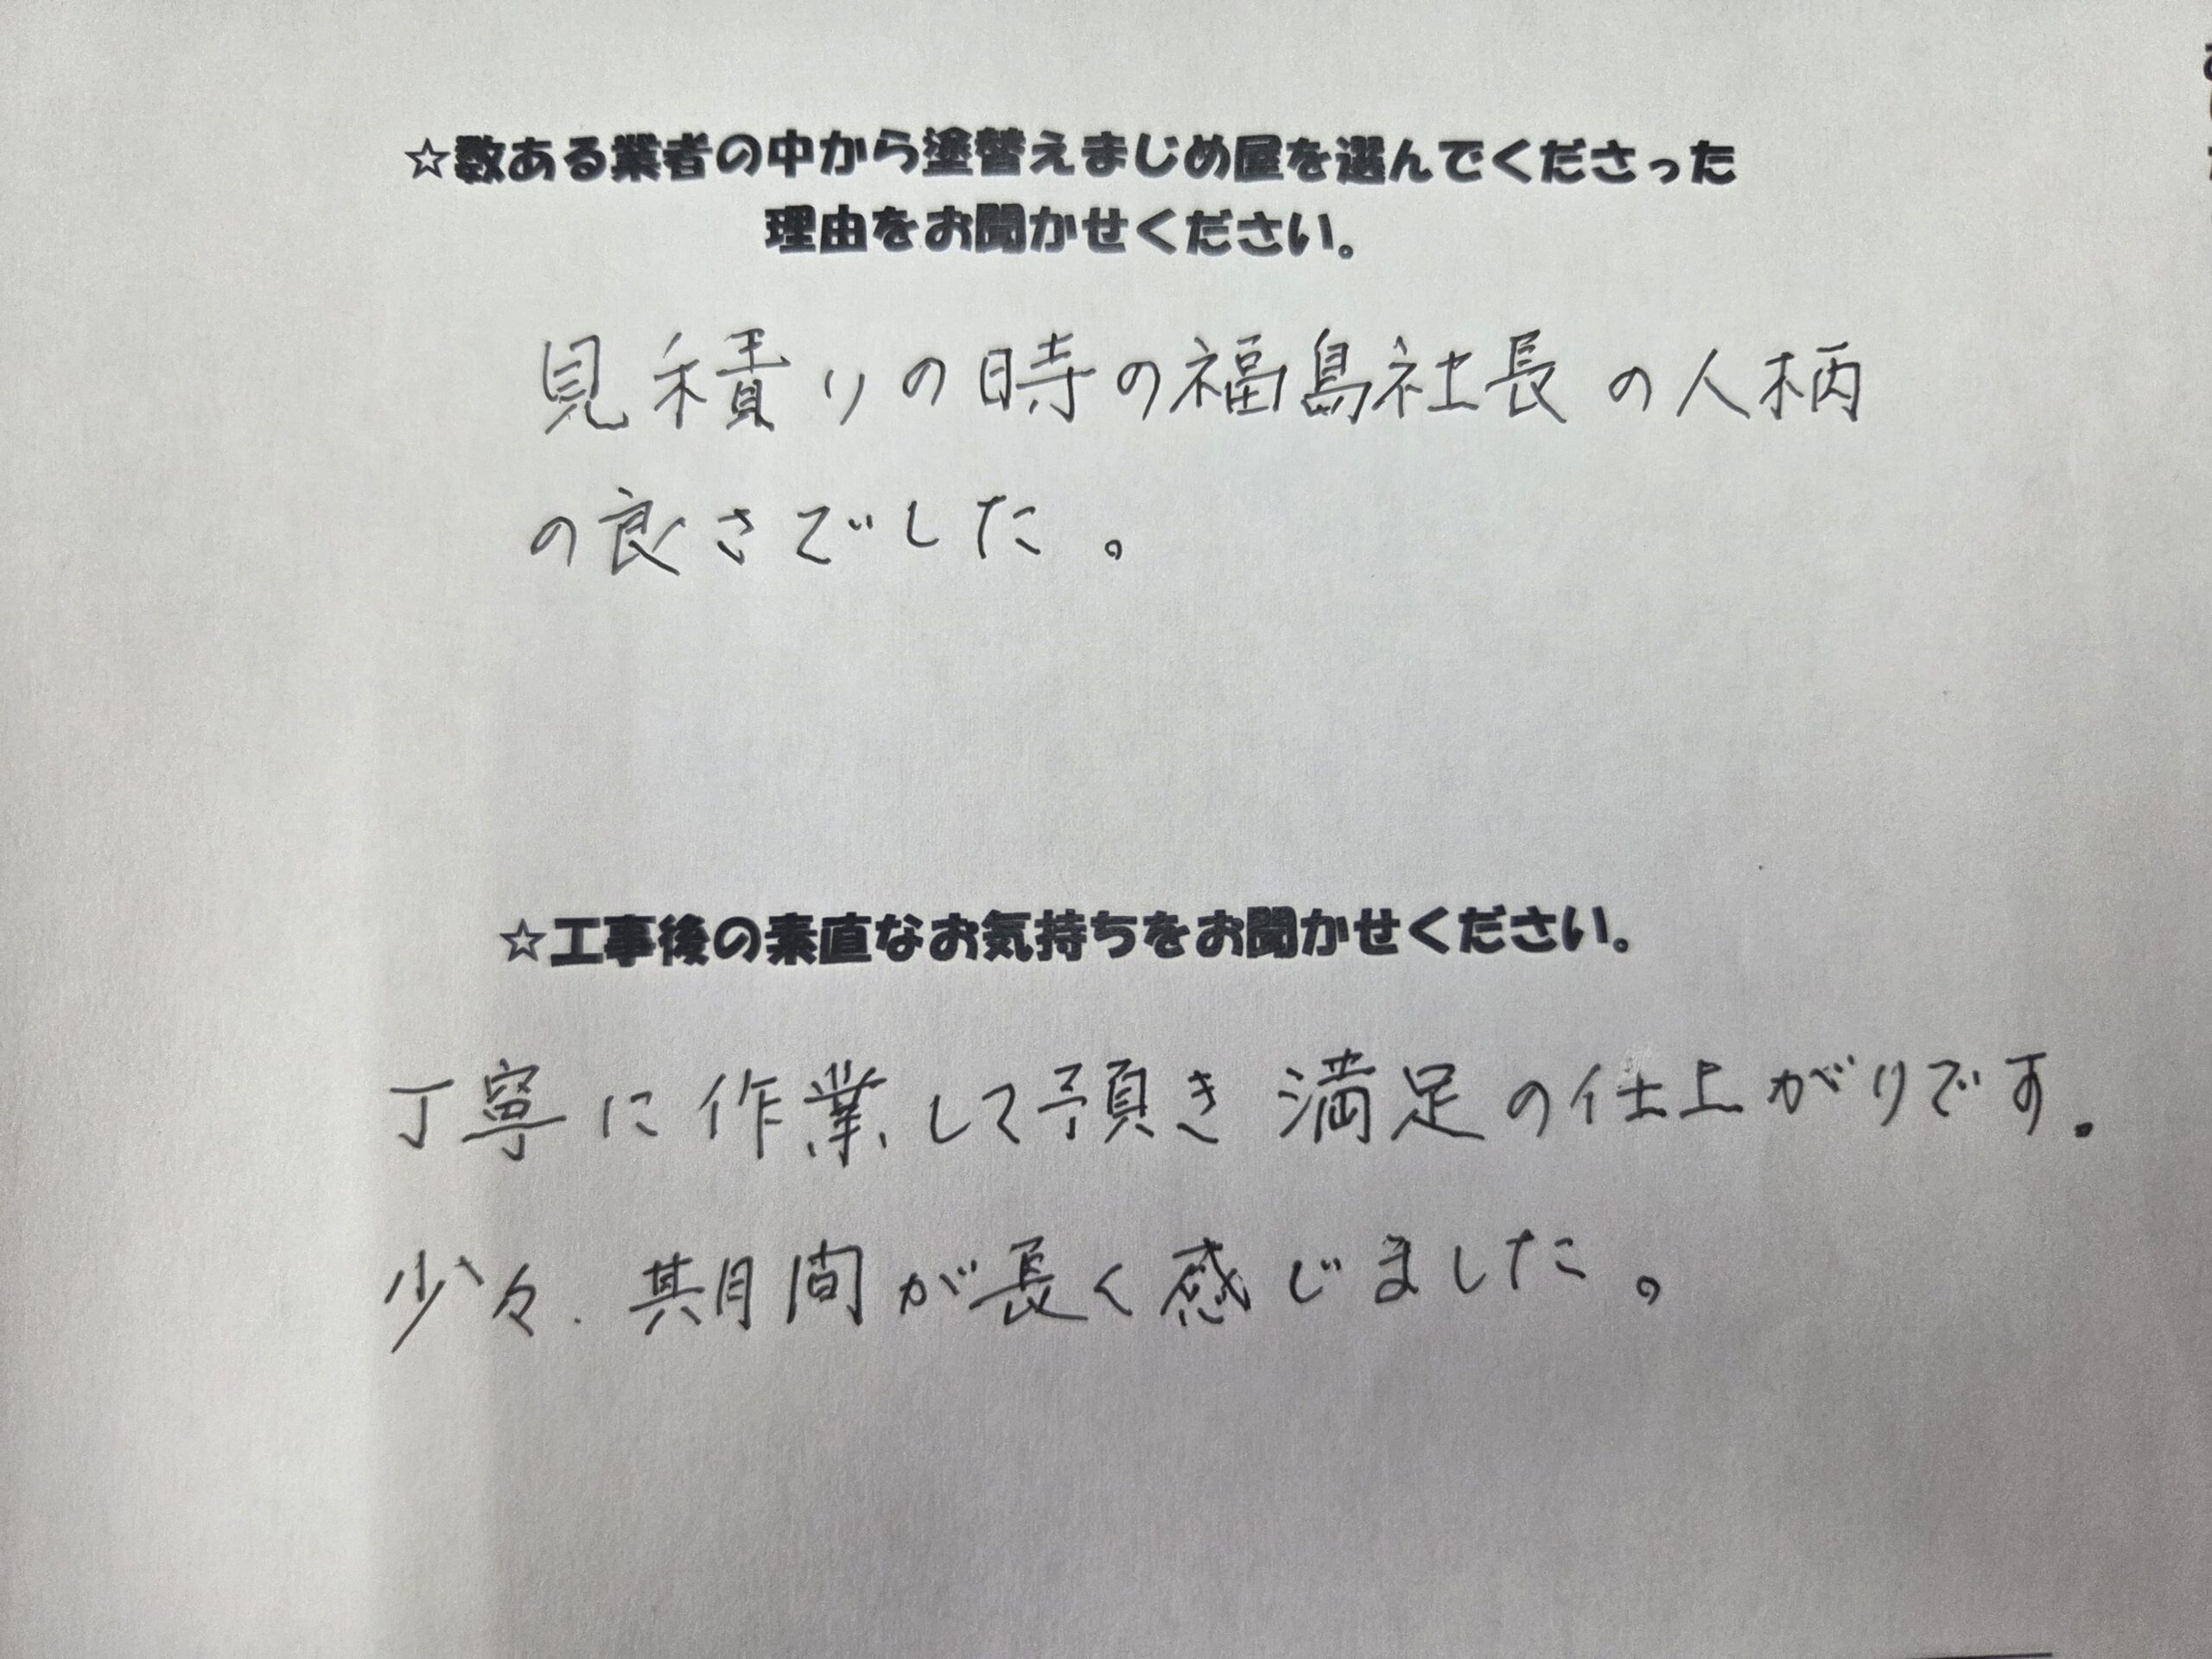 ☆数ある業者の中から塗替えまじめ屋を選んでくださった
理由をお聞かせください。
見積りの時の福島社長の人柄
の良さでした。
☆工事後の素直なお気持ちをお聞かせください。
丁寧に作業して預き満足の仕上がりです。
少々、期間が長く感じました。